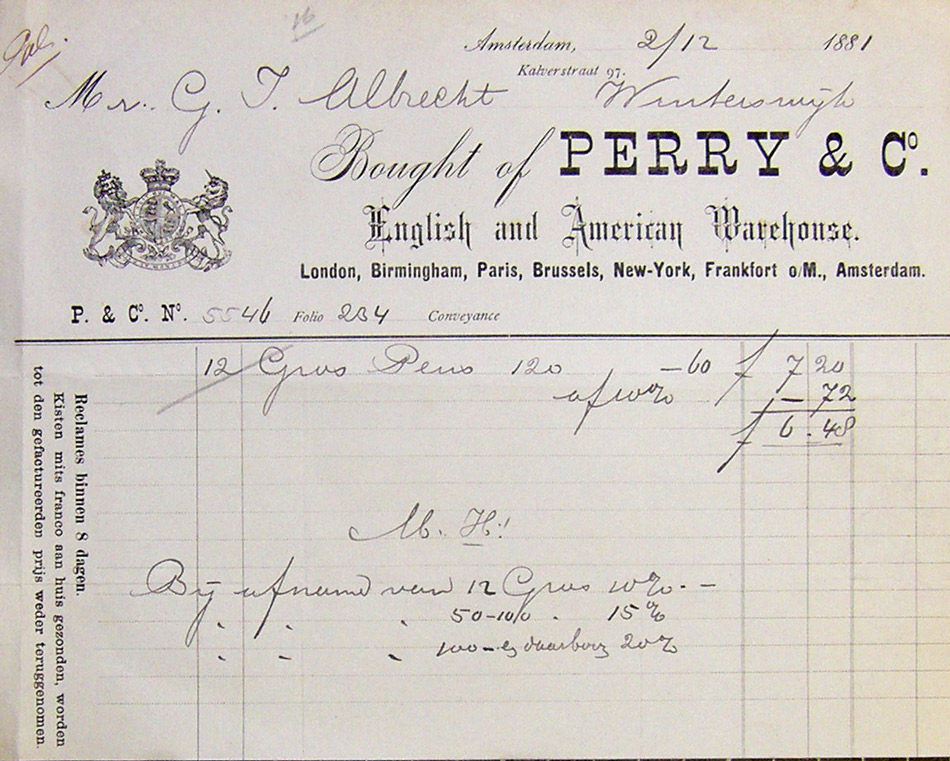 16
Amsterdam, 2/12 1881
Kalverstraat 97.
Mr. G. J. Albrecht Winterswijk
Bought of PERRY & Co.
English and American Warehouse.
London, Birmingham, Paris, Brussels, New-York, Frankfort o/M., Amsterdam.
P. & Co. No. 5546 Folio 234 Conveyance
12 Gros Pens 120 —60 f 7 20
af 10% — 72
f 6.48
M. H.!
Bij afname van 12 Gros 10%. —
" " " 50-100 " 15%
" " " 100 – en daarboven 20%
Reclames binnen 8 dagen.
Kisten mits franco aan huis gezonden, worden
tot den gefactureerden prijs weder teruggenomen.